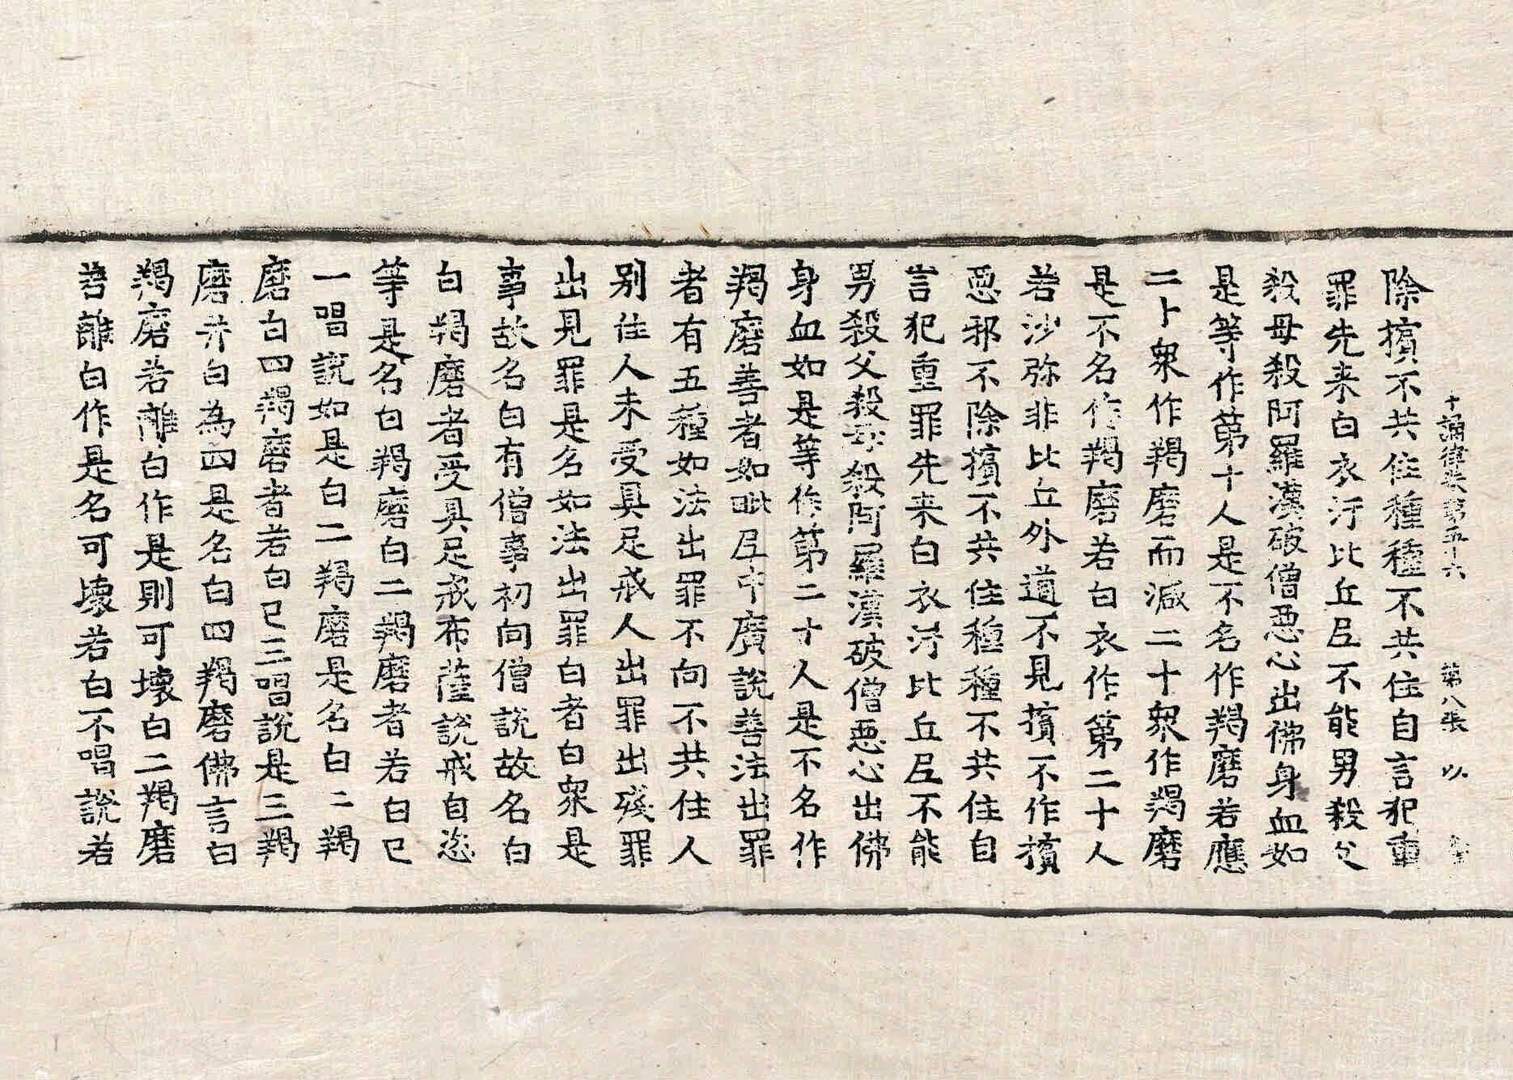 十誦律卷第五十六 第八張 以
除擯不共住種種不共住自言犯重
罪先来白衣汙比丘尼不能男殺父
殺母殺阿羅漢破僧惡心出佛身血如
是等作第十人是不名作羯磨若應
二十衆作羯磨而減二十衆作羯磨
是不名作羯磨若白衣作第二十人
若沙弥非比丘外道不見擯不作擯
惡邪不除擯不共住種種不共住自
言犯重罪先来白衣汙比丘尼不能
男殺父殺母殺阿羅漢破僧惡心出佛
身血如是等作第二十人是不名作
羯磨善者如毗尼中廣說善法出罪
者有五種如法出罪不向不共住人
别住人未受具足戒人出罪出殘罪
出見罪是名如法出罪白者白衆是
事故名白有僧事初向僧說故名白
白羯磨者受具足戒布薩說戒自恣
等是名白羯磨白二羯磨者若白已
一唱說如是白二羯磨是名白二羯
磨白四羯磨者若白已三唱說是三羯
磨并白為四是名白四羯磨佛言白
羯磨若離白作是則可壞白二羯磨
若離白作是名可壞若白不唱說若